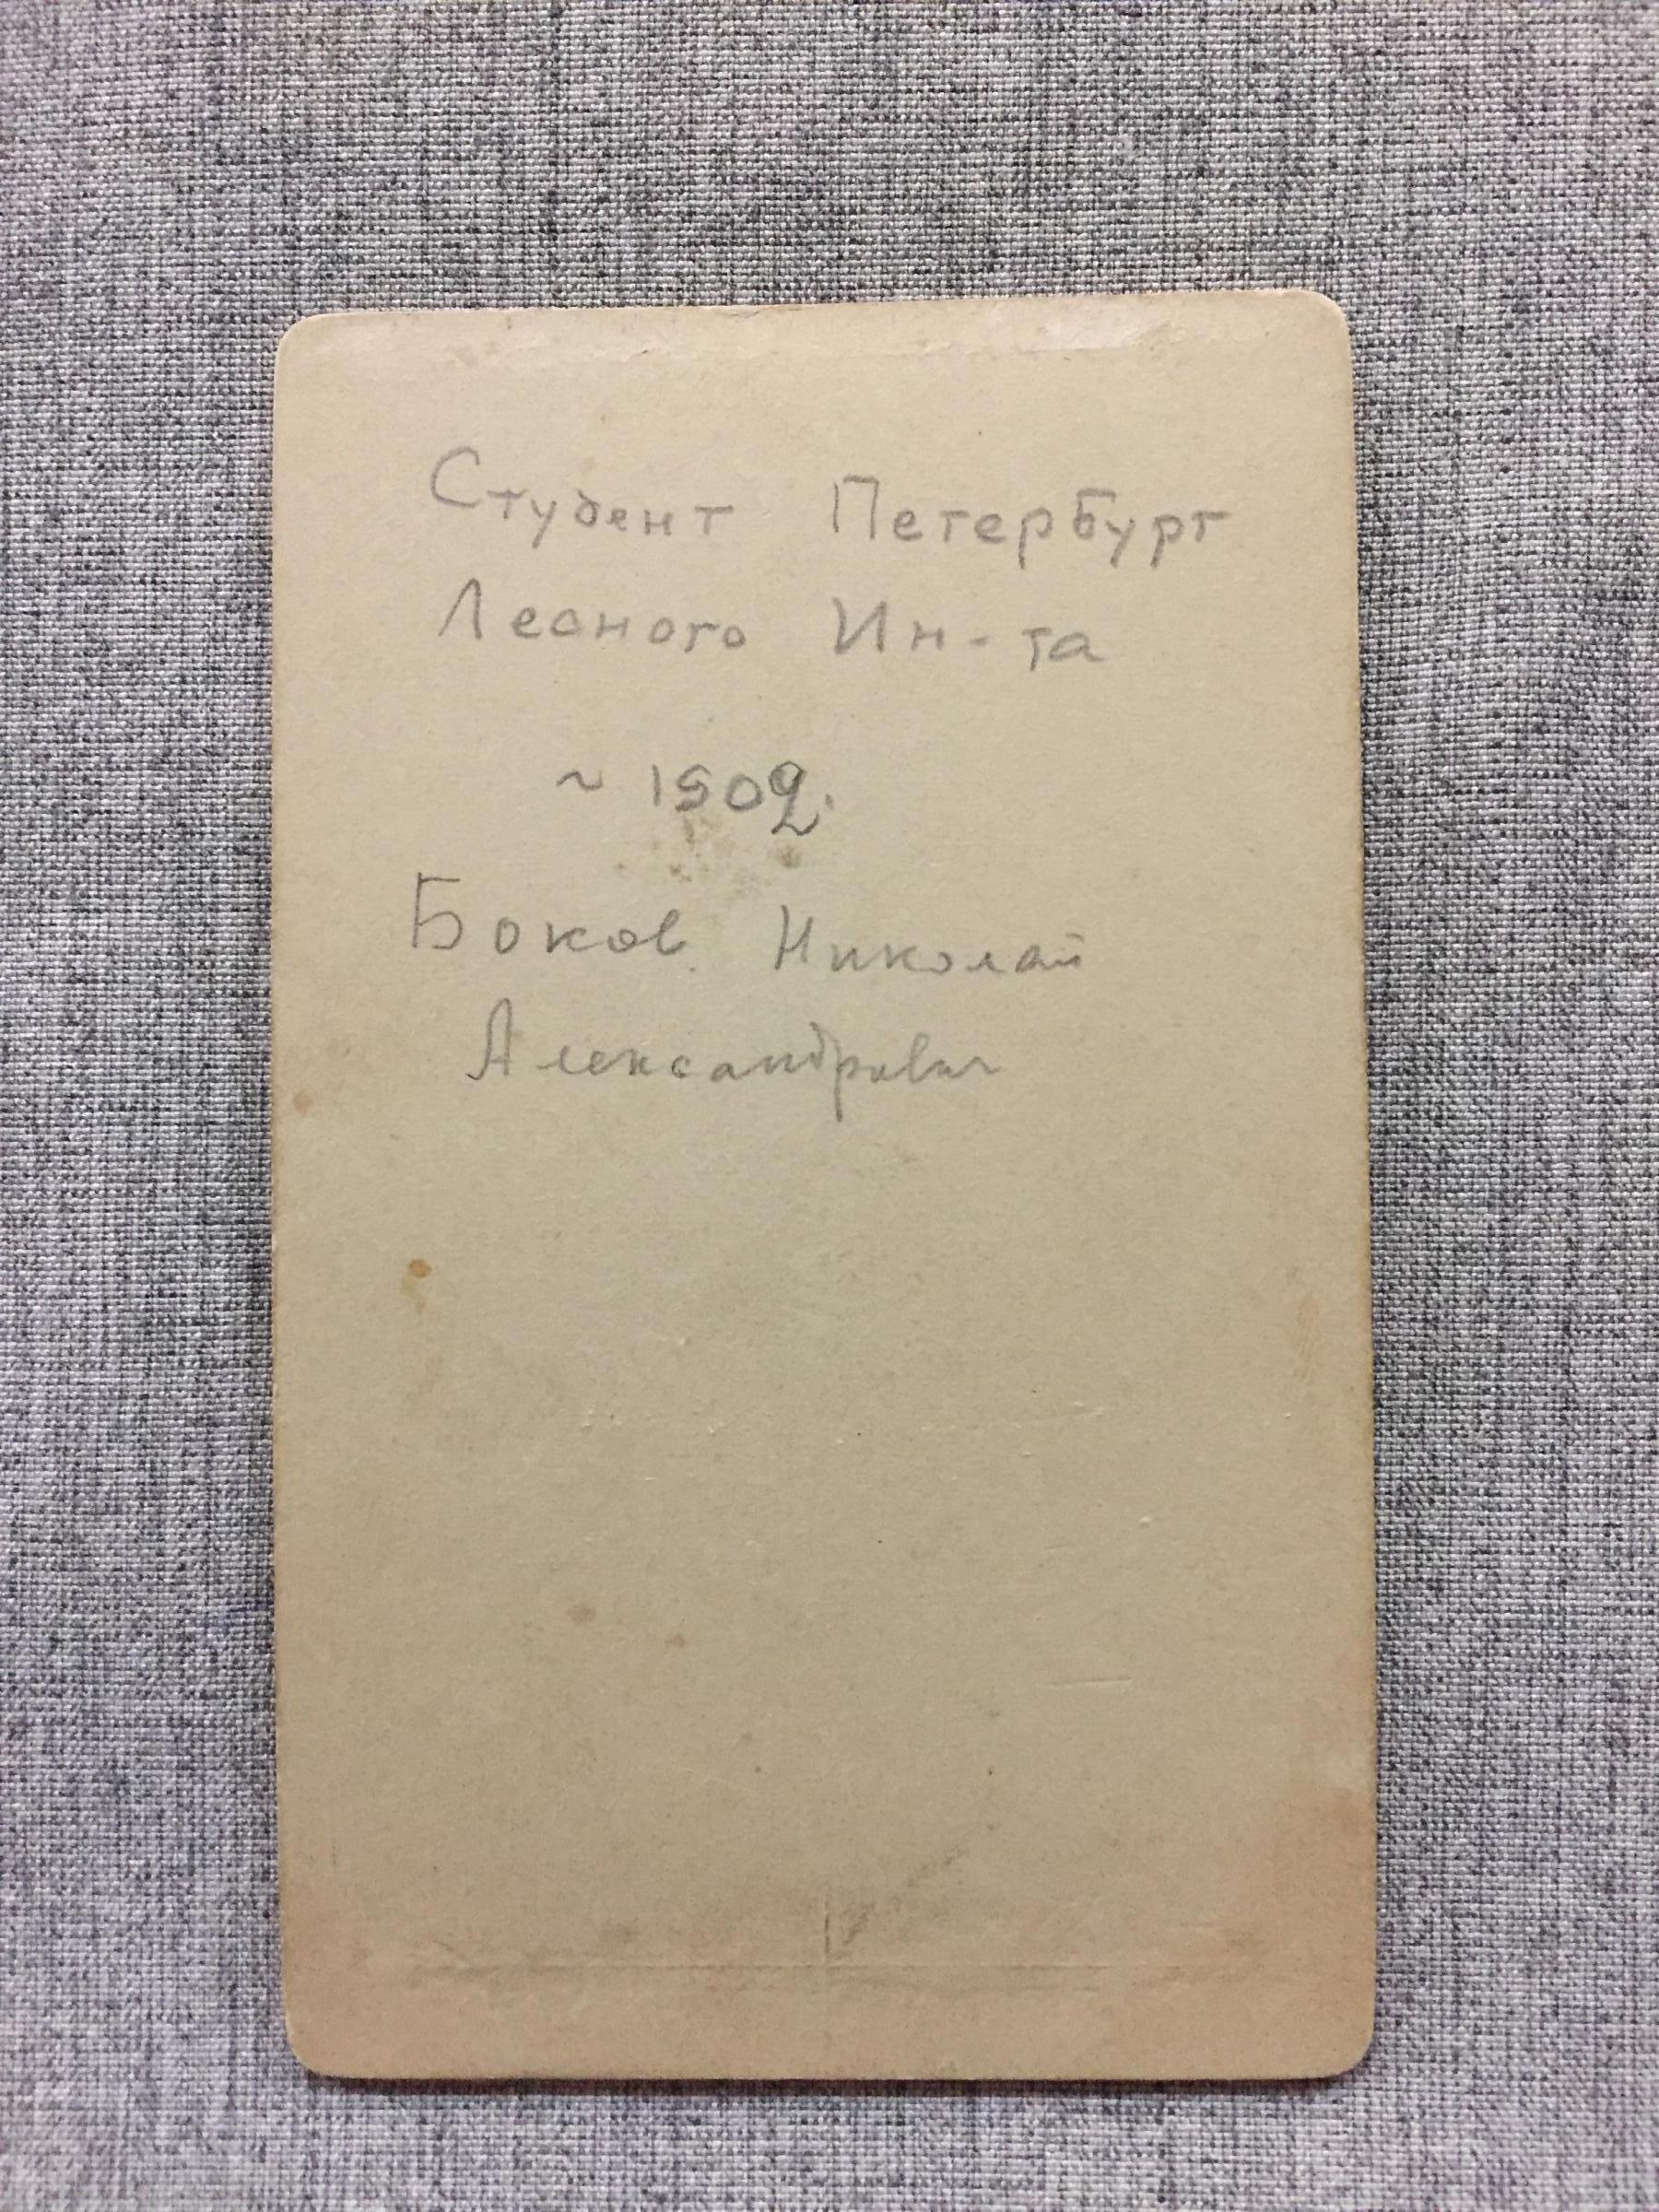 Студент Петербург
Лесного Ин-та
~ 1902.
Боков Николай
Александрович